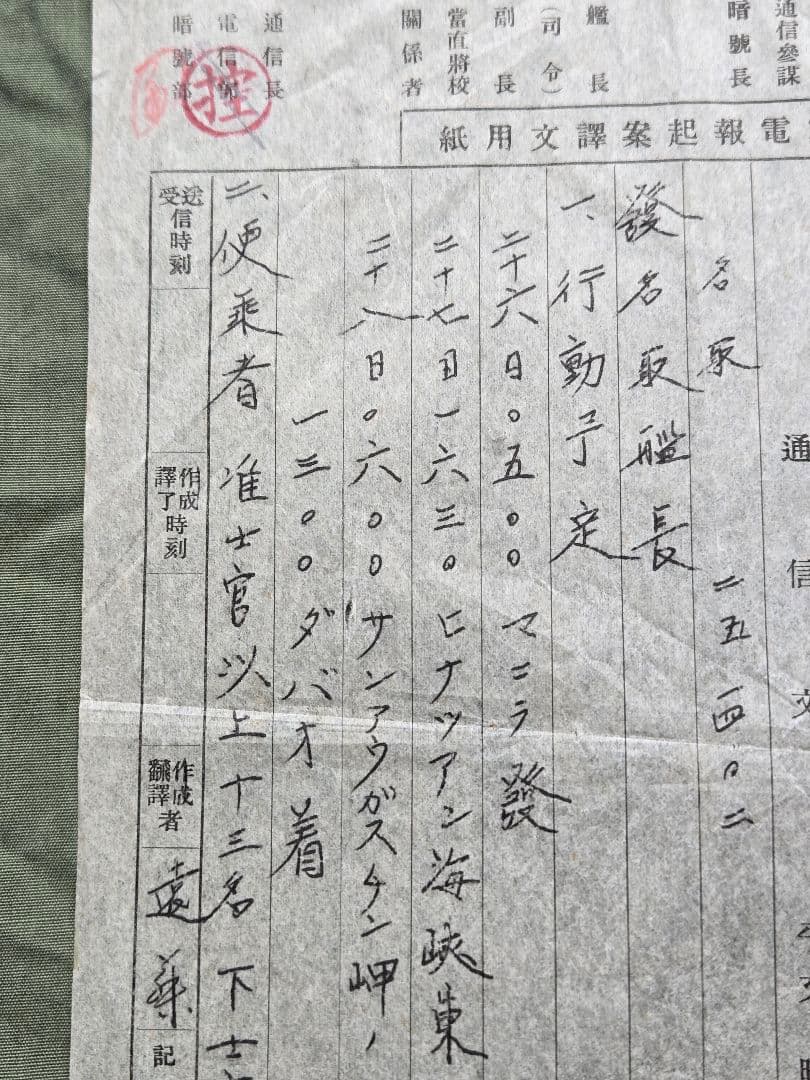 通信參謀
暗號長
艦長
（司令）
副長
當直將校
關係者
通信長
電信
暗號部
控
電報起案譯文用紙
通信文
名取 二五一四〇二
發名取艦長
一、行動予定
二十六日〇五〇〇 マニラ發
二十七日一六三〇 ヒナツアン海峽東
二十八日〇六〇〇 サンアウガスチン岬ノ
一三〇〇 ダバオ着
二、便乘者 准士官以上十三名 下士
送受信時刻
作成譯了時刻
作成飜譯者
遠藤
記